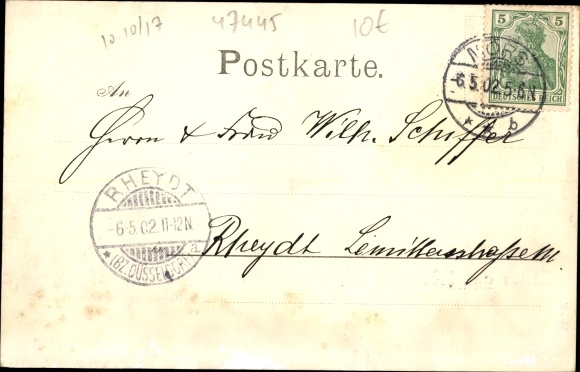 10 10/17 47445 10€
5 5
Postkarte.
MÖRS
-6.5.02.5-6N
* b
DEUTSCHES REICH
An
Herrn & Frau Wilh. Schiffer
RHEYDT
-6.5.02.11-12N
* (BZ. DÜSSELDORF) a
Rheydt